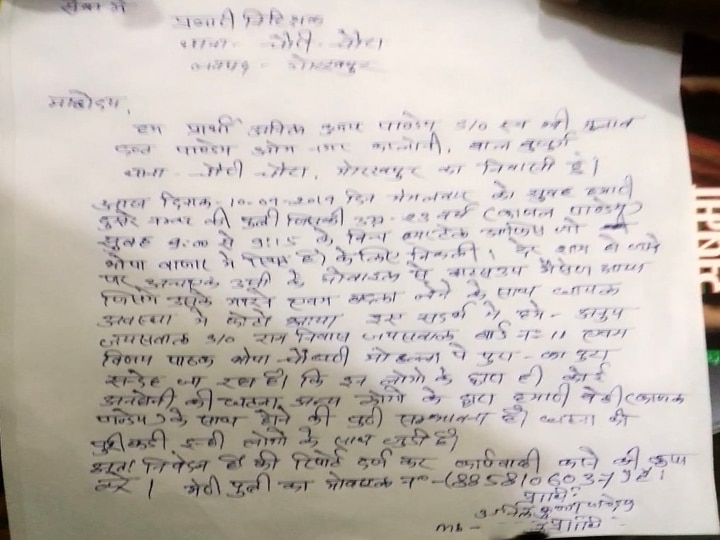 सेवा में
प्रभारी निरिक्षक
थाना - चौरी - चौरा
जनपद - गोरखपुर
महोदय,
हम प्रार्थी अनिल कुमार पाण्डेय S/O स्व श्री
दत्त पाण्डेय ओम नगर कालोनी, बाल बुजुर्ग
थाना - चौरी चौरा, गोरखपुर का निवासी हूँ।
आज दिनांक - 10-09-2019 दिन मंगलवार को सुबह हमारी
दुसरे नम्बर की पुत्री जिसकी उम्र - 23 वर्ष (काजल पाण्डेय)
सुबह 9:00 से 9:15 के बिच आफिस जो
भोपा बाजार में स्थित है) के लिए निकली। देर शाम हो जाने
पर अचानक उसी के मोबाइल से वाट्सएप मैसेज आया
जिसमें उसके एवम बदला लेने के साथ
अवस्था में फोटो आया इस संदर्भ में हमे - अनुप
जायसवाल S/O राम निवास जायसवाल वार्ड न० 11 एवम
विजय पाठक भोपा - चौराहा मोहल्ला पे पुरा - का पुरा
सन्देह जा रहा है। कि इन लोगो के द्वारा ही कोई
अनहोनी की घटना अन्य लोगो के द्वारा हमारी बेटी (काजल
पाण्डेय) के साथ होने की पुरी सम्भावना है। घटना की
पुरी कड़ी इन्ही लोगो के साथ जुड़ी है।
अतः निवेदन है की रिपोर्ट दर्ज कर कार्यवाही करने की कृपा
करे। मेरी पुत्री का मोबाइल न० - (8858106037) है।
प्रार्थी
अनिल कुमार पाण्डेय
mb -